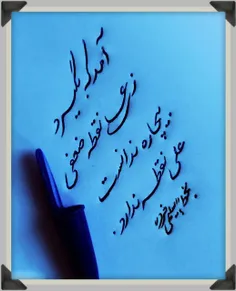 آمد که بگیرد
ز علی نقطه ضعفی
بیچاره ندانست
علی نقطه ندارد.
بخط: